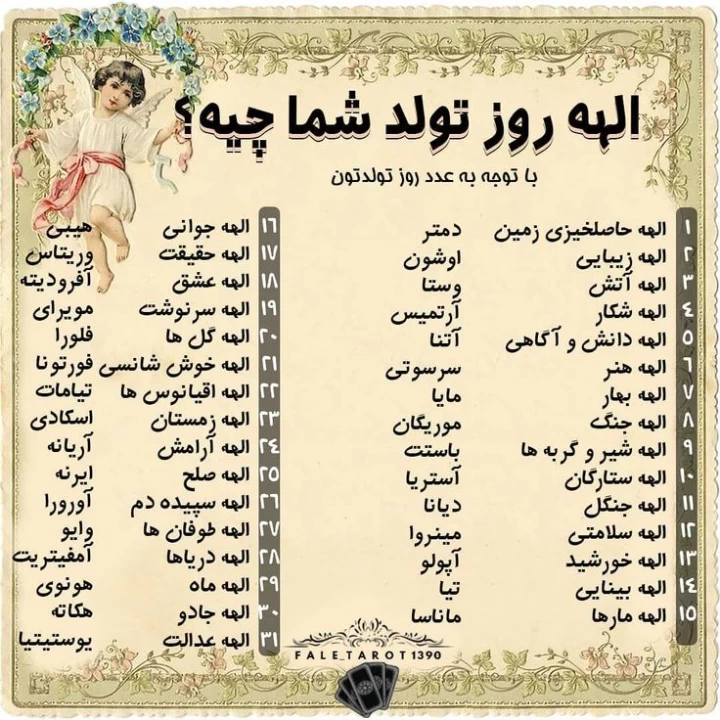 الهه روز تولد شما چیه؟
با توجه به عدد روز تولدتون
۱ الهه حاصلخیزی زمین دمتر
۲ الهه زیبایی اوشون
۳ الهه آتش وستا
٤ الهه شکار آرتمیس
۵ الهه دانش و آگاهی آتنا
٦ الهه هنر سرسوتی
۷ الهه بهار مایا
۸ الهه جنگ موریگان
۹ الهه شیر و گربه ها باستت
۱۰ الهه ستارگان آستریا
۱۱ الهه جنگل دیانا
۱۲ الهه سلامتی مینروا
۱۳ الهه خورشید آپولو
۱٤ الهه بینایی تیا
۱۵ الهه مارها ماناسا
۱٦ الهه جوانی هیبی
۱۷ الهه حقیقت وریتاس
۱۸ الهه عشق آفرودیته
۱۹ الهه سرنوشت مویرای
۲۰ الهه گل ها فلورا
۲۱ الهه خوش شانسی فورتونا
۲۲ الهه اقیانوس ها تیامات
۲۳ الهه زمستان اسکادی
۲٤ الهه آرامش آریانه
۲۵ الهه صلح ایرنه
۲٦ الهه سپیده دم آورورا
۲۷ الهه طوفان ها وایو
۲۸ الهه دریاها آمفیتریت
۲۹ الهه ماه هونوی
۳۰ الهه جادو هکاته
۳۱ الهه عدالت یوستیتیا
FALE_TAROT1390